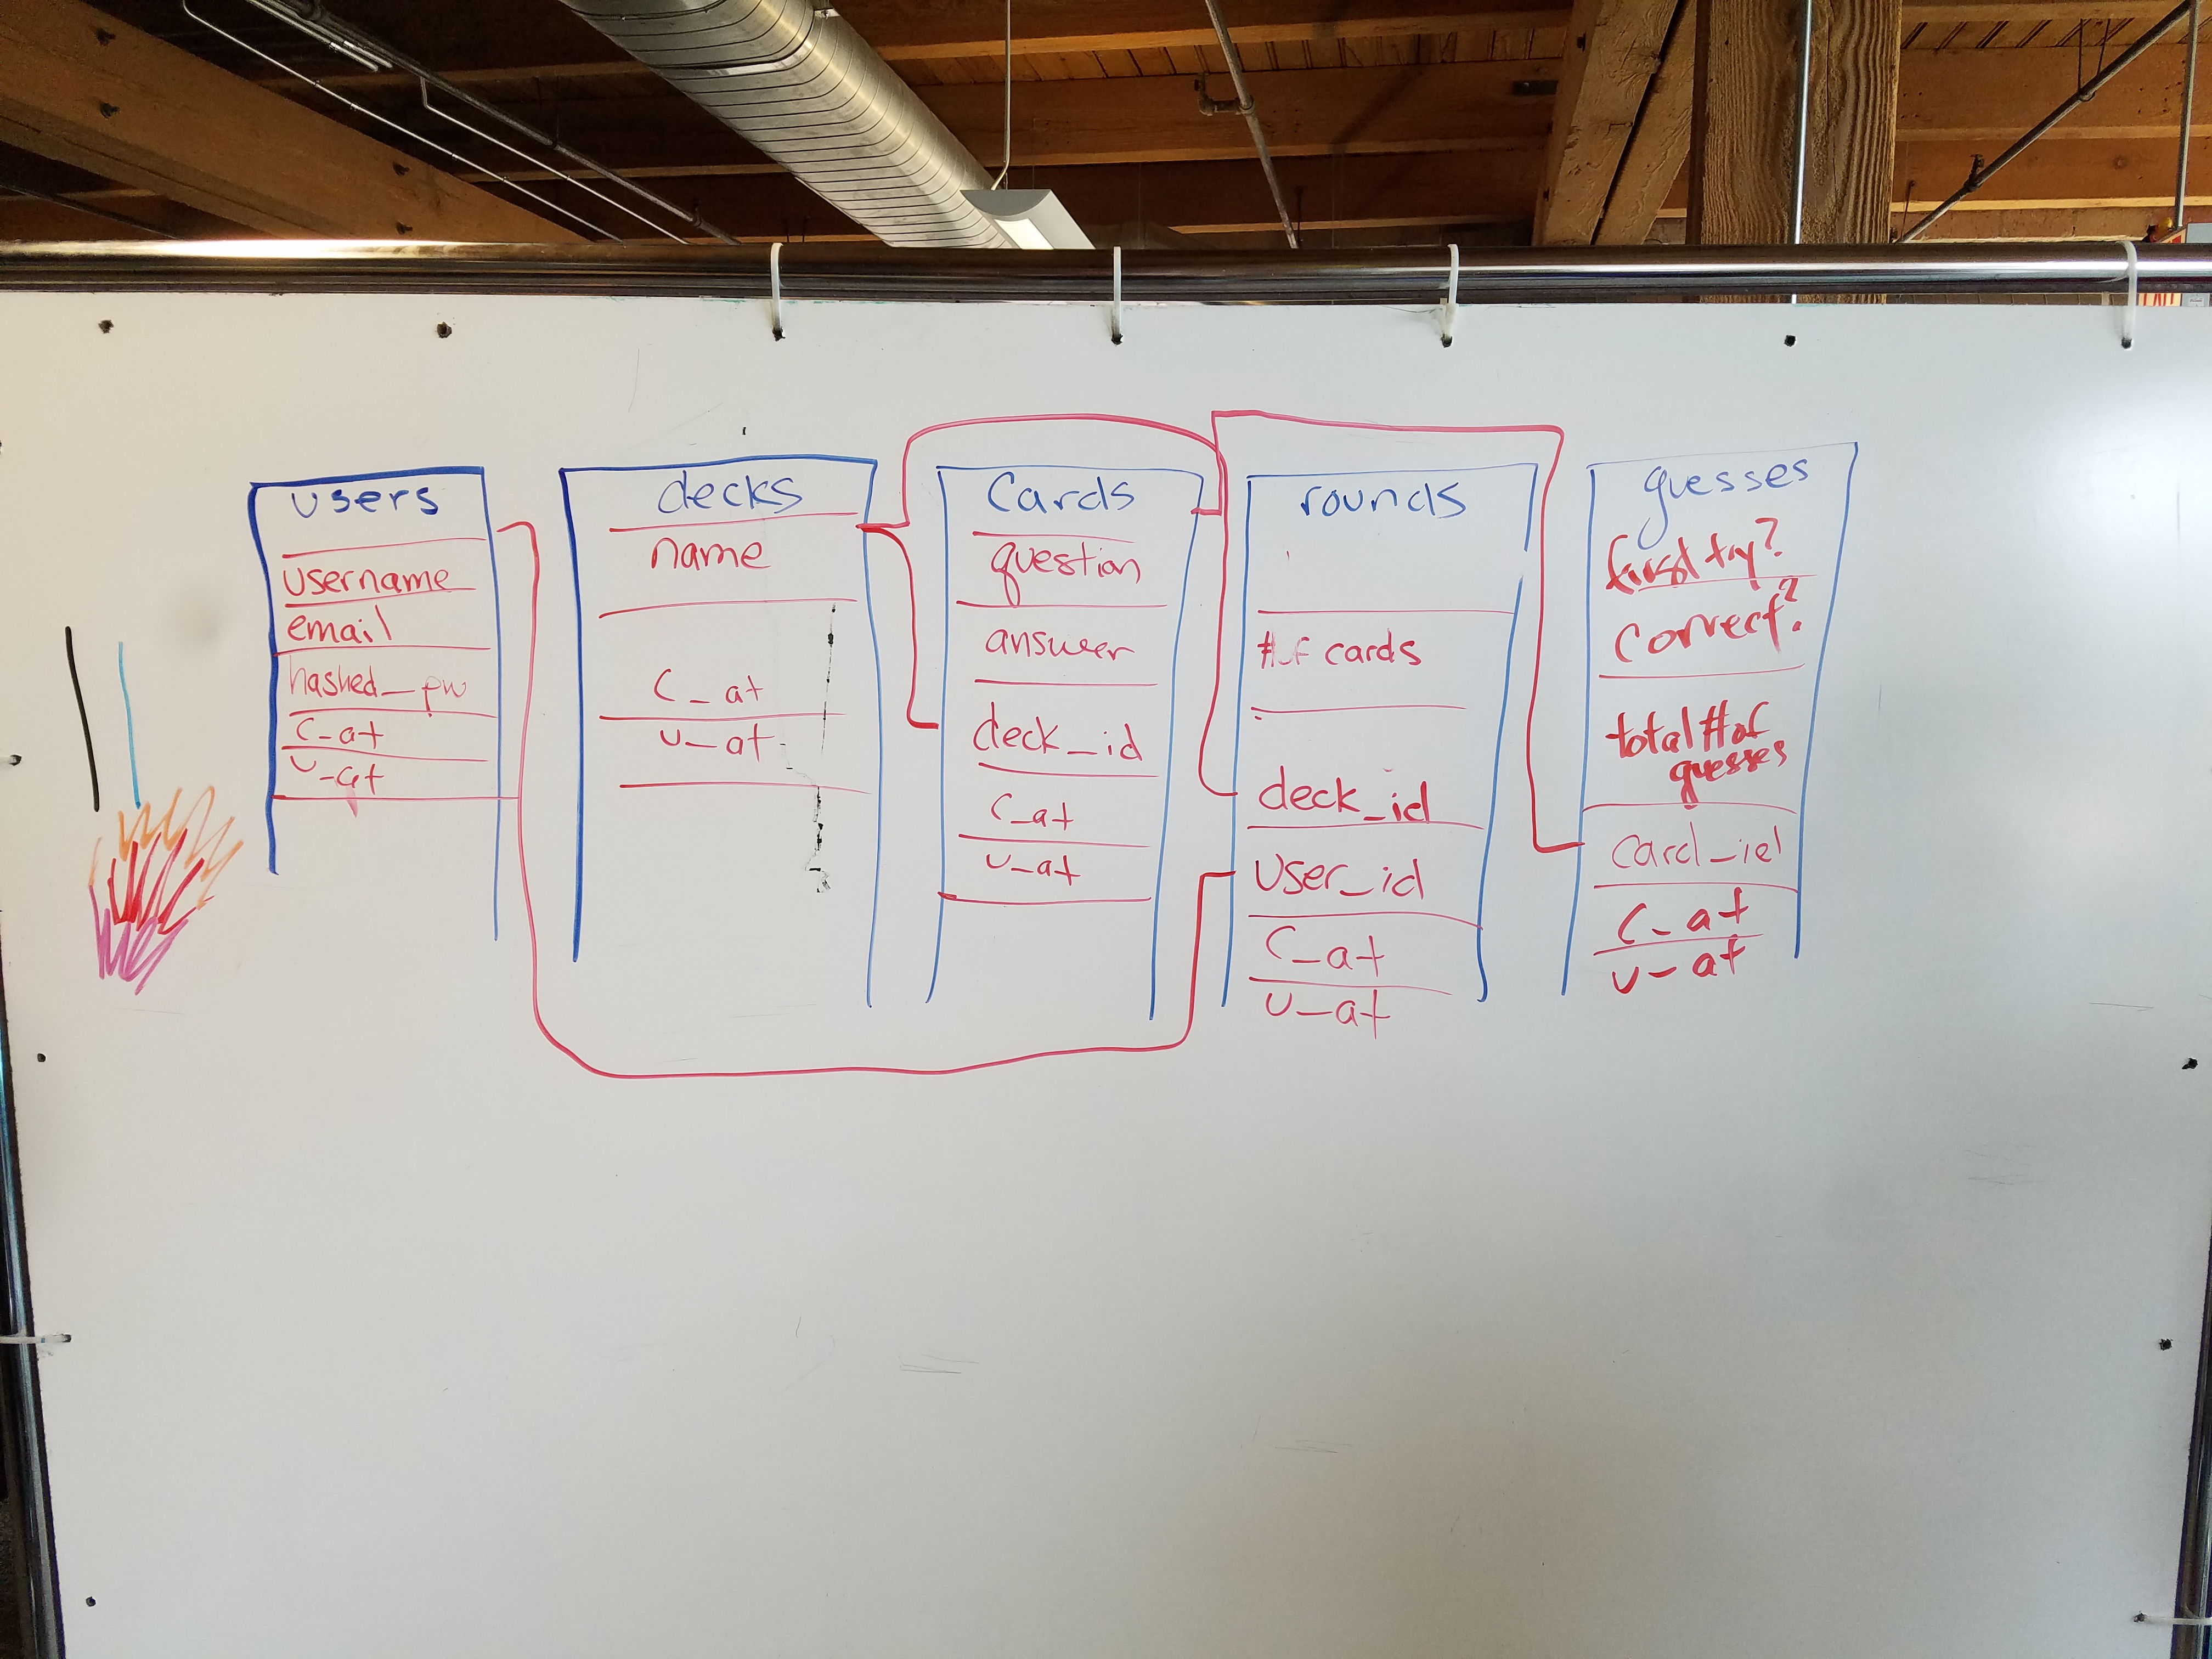 users
username
email
hashed_pw
c_at
u_at
decks
name
c_at
u_at
Cards
question
answer
deck_id
c_at
u_at
rounds
# of cards
deck_id
user_id
c_at
u_at
guesses
first try?
correct?
total # of
guesses
card_id
c_at
u_at